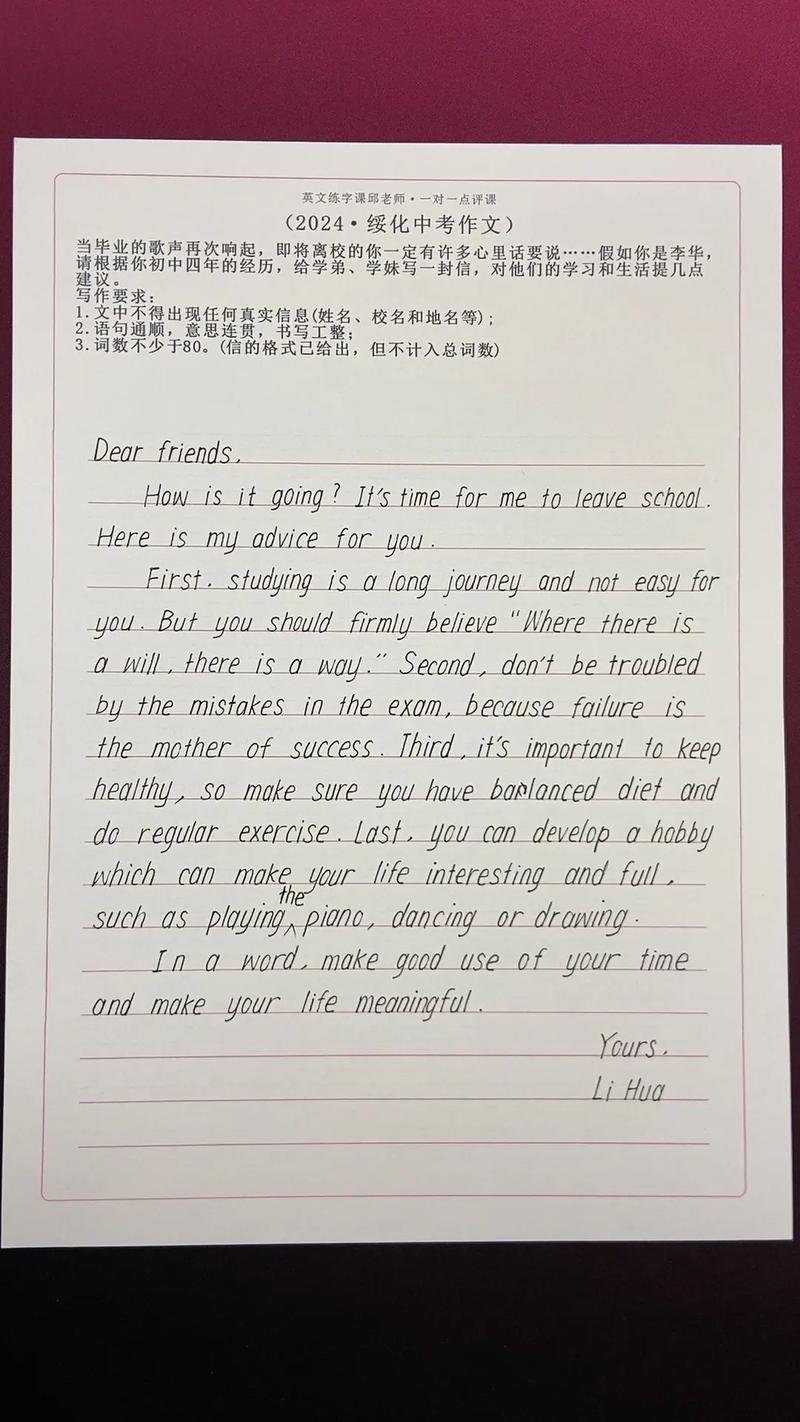 英文练字课邱老师·一对一点评课
（2024·绥化中考作文）
当毕业的歌声再次响起，即将离校的你一定有许多心里话要说……假如你是李华，
请根据你初中四年的经历，给学弟、学妹写一封信，对他们的学习和生活提几点
建议。
写作要求：
1.文中不得出现任何真实信息(姓名、校名和地名等)；
2.语句通顺，意思连贯，书写工整；
3.词数不少于80。(信的格式已给出，但不计入总词数)
Dear friends,
How is it going? It's time for me to leave school.
Here is my advice for you.
First, studying is a long journey and not easy for
you. But you should firmly believe "Where there is
a will, there is a way." Second, don't be troubled
by the mistakes in the exam, because failure is
the mother of success. Third, it's important to keep
healthy, so make sure you have balanced diet and
do regular exercise. Last, you can develop a hobby
which can make your life interesting and full,
such as playing the piano, dancing or drawing.
In a word, make good use of your time
and make your life meaningful.
Yours,
Li Hua